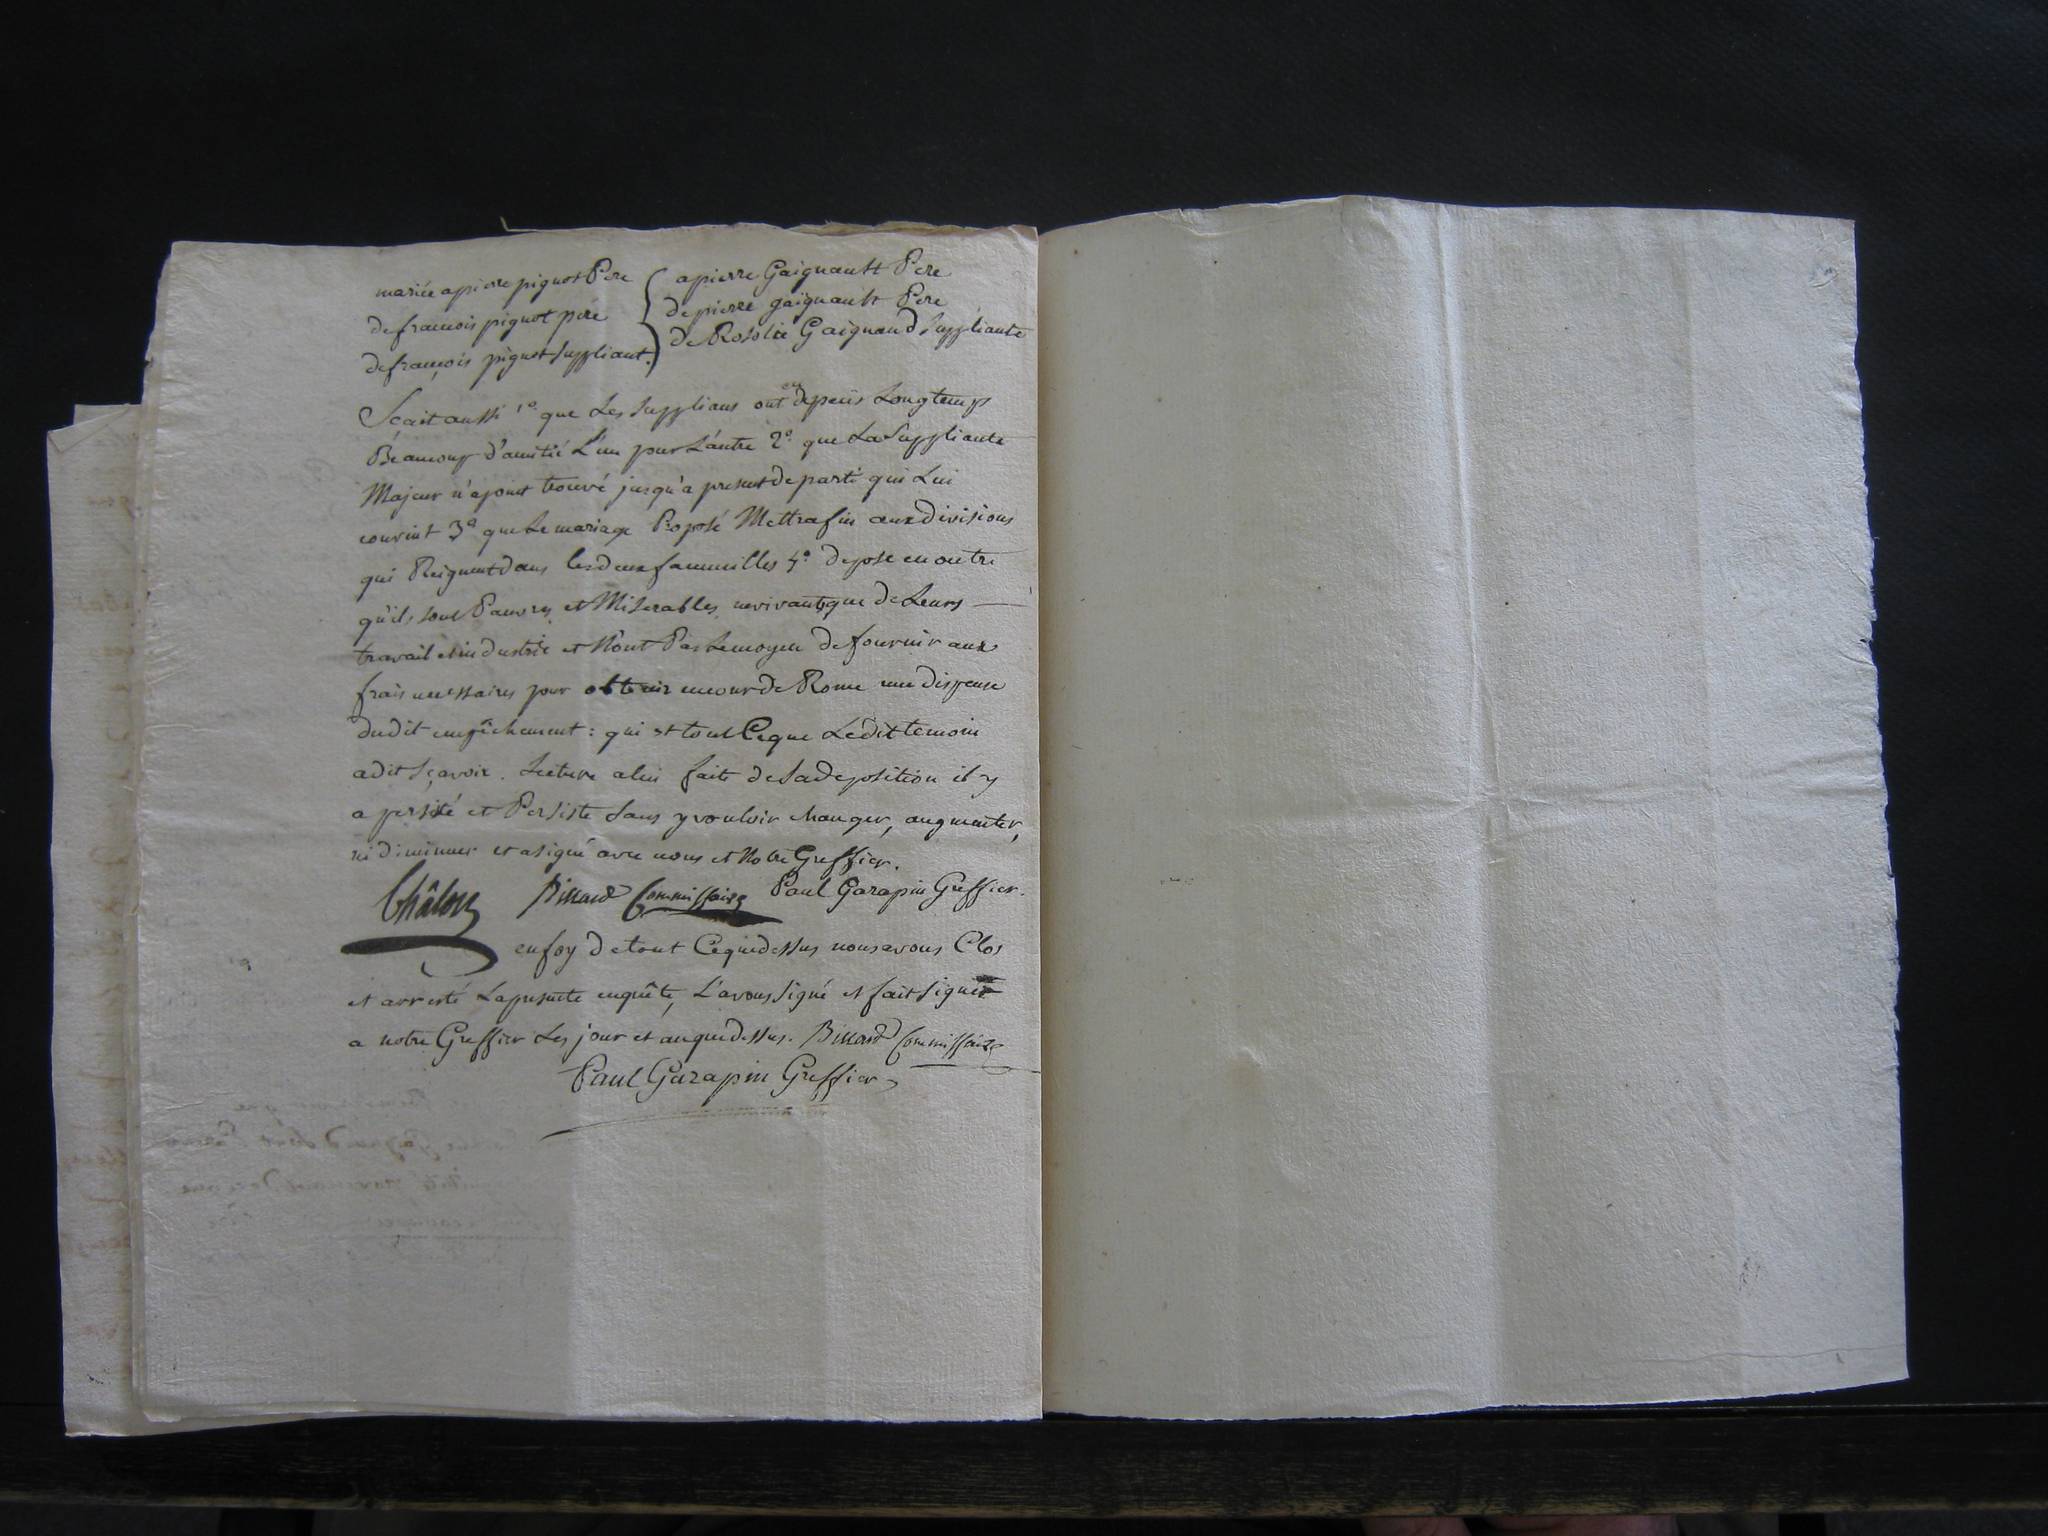 mariée a pierre pignot Pere
de francois pignot pere
de françois pignot suppliant.
a pierre Gaignault Pere
de pierre gaignault Pere
de Rosolie Gaignaud Suppliante
Scait aussi 1º que Les Supplians ont eu depuis Longtemps
Beaucoup d'amitié L'un pour L'autre 2º que La Suppliante
Majeur n'a point trouvé jusqu'a present de parti qui Lui
convint 3º que Le mariage Proposé Mettra fin aux divisions
qui Reignent dans les deux fammilles 4º depose en outre
qu'ils sont Pauvres et Miserables ne vivants que de Leurs
travail et industrie et N'ont Pas Le moyen de fournir aux
frais necessaires pour obtenir en cour de Rome une dispense
dudit empêchement : qui est tout Ce que Ledit temoin
a dit sçavoir. Lecture a lui faite de sa deposition il y
a persisté et Persiste sans y vouloir changer, augmenter,
ni diminuer et a signé avec nous et Notre Greffier.
Châlon Billard Commissaire Paul Garapin Greffier.
en foy de tout Ce qui dessus nous avons Clos
et arresté La presente enquête, L'avons signé et fait signer
a notre Greffier Les jour et an que dessus. Billard Commissaire
Paul Garapin Greffier